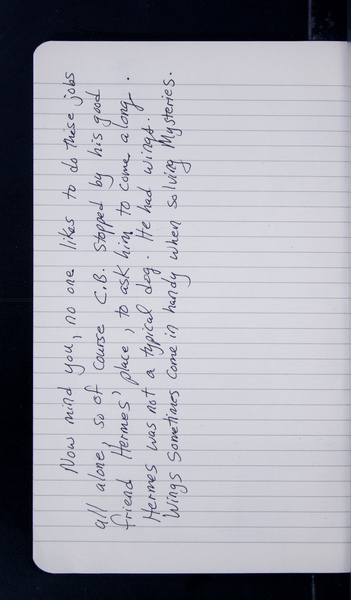 Now mind you, no one likes to do these jobs
all alone, so of course C.B. stopped by his good
friend Hermes' place, to ask him to come along.
Hermes was not a typical dog. He had wings.
Wings sometimes come in handy when solving Mysteries.